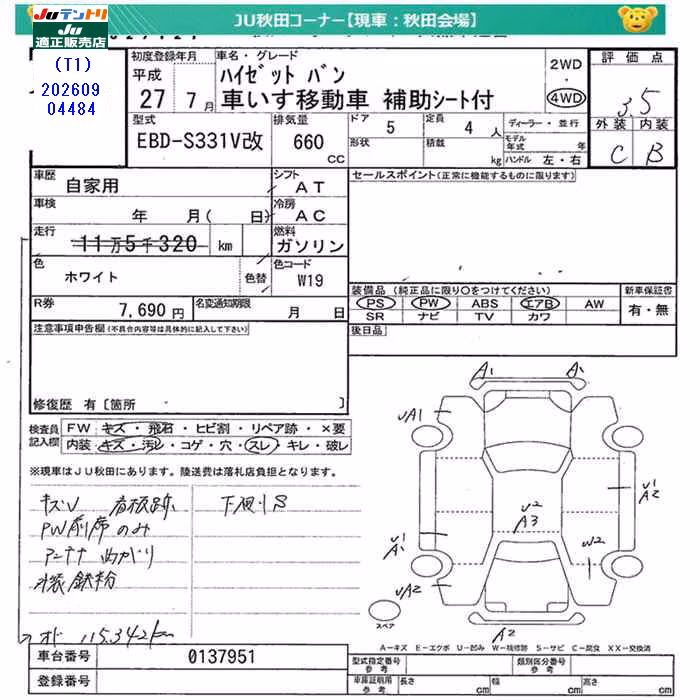 JU秋田コーナー【現車：秋田会場】
JUテントリ
適正販売店
(T1)
202609
04484
初度登録年月
平成
27 7月
車名・グレード
ﾊｲｾﾞｯﾄ ﾊﾞﾝ
車いす移動車 補助ｼｰﾄ付
2WD
・
4WD
評価点
3.5
外装 内装
C B
型式
EBD-S331V改
排気量
660
CC
ドア 5
形状
定員 4 人
積載 kg
ディーラー・並行
モデル年式 年
ハンドル 左・右
車歴
自家用
シフト
AT
車検
年 月( 日)
冷房
AC
走行
11万5千320 km
燃料
ガソリン
色
ホワイト
色替
色コード
W19
R券
7,690円
名変通知期限
月 日
セールスポイント(正常に機能するものに限ります)
装備品 (純正品に限り○をつけてください)
PS PW ABS エアB AW
SR ナビ TV カワ
新車保証書
有・無
後日品
注意事項申告欄(不具合内容等は具体的に記入して下さい)
修復歴 有 [箇所 ]
検査員
記入欄
FW キズ・飛石・ヒビ割・リペア跡・×要
内装 キズ・汚レ・コゲ・穴・スレ・キレ・破レ
※現車はJU秋田にあります。陸送費は落札店負担となります。
キズU 看板跡
下廻りS
PW前席のみ
アンテナ曲がり
外装鉄粉
→オド 115,342km
A1 A1
UA1
U2
A3
U1
A2
U1
A1
W2
UA2
A2
スペア
A－キズ E－エクボ U－凹み W－補修跡 S－サビ C－腐食 XX－交換済
車台番号
0137951
登録番号
型式指定番号
参考
類別区分番号
参考
車庫証明用
参考
長さ cm
幅 cm
高さ cm